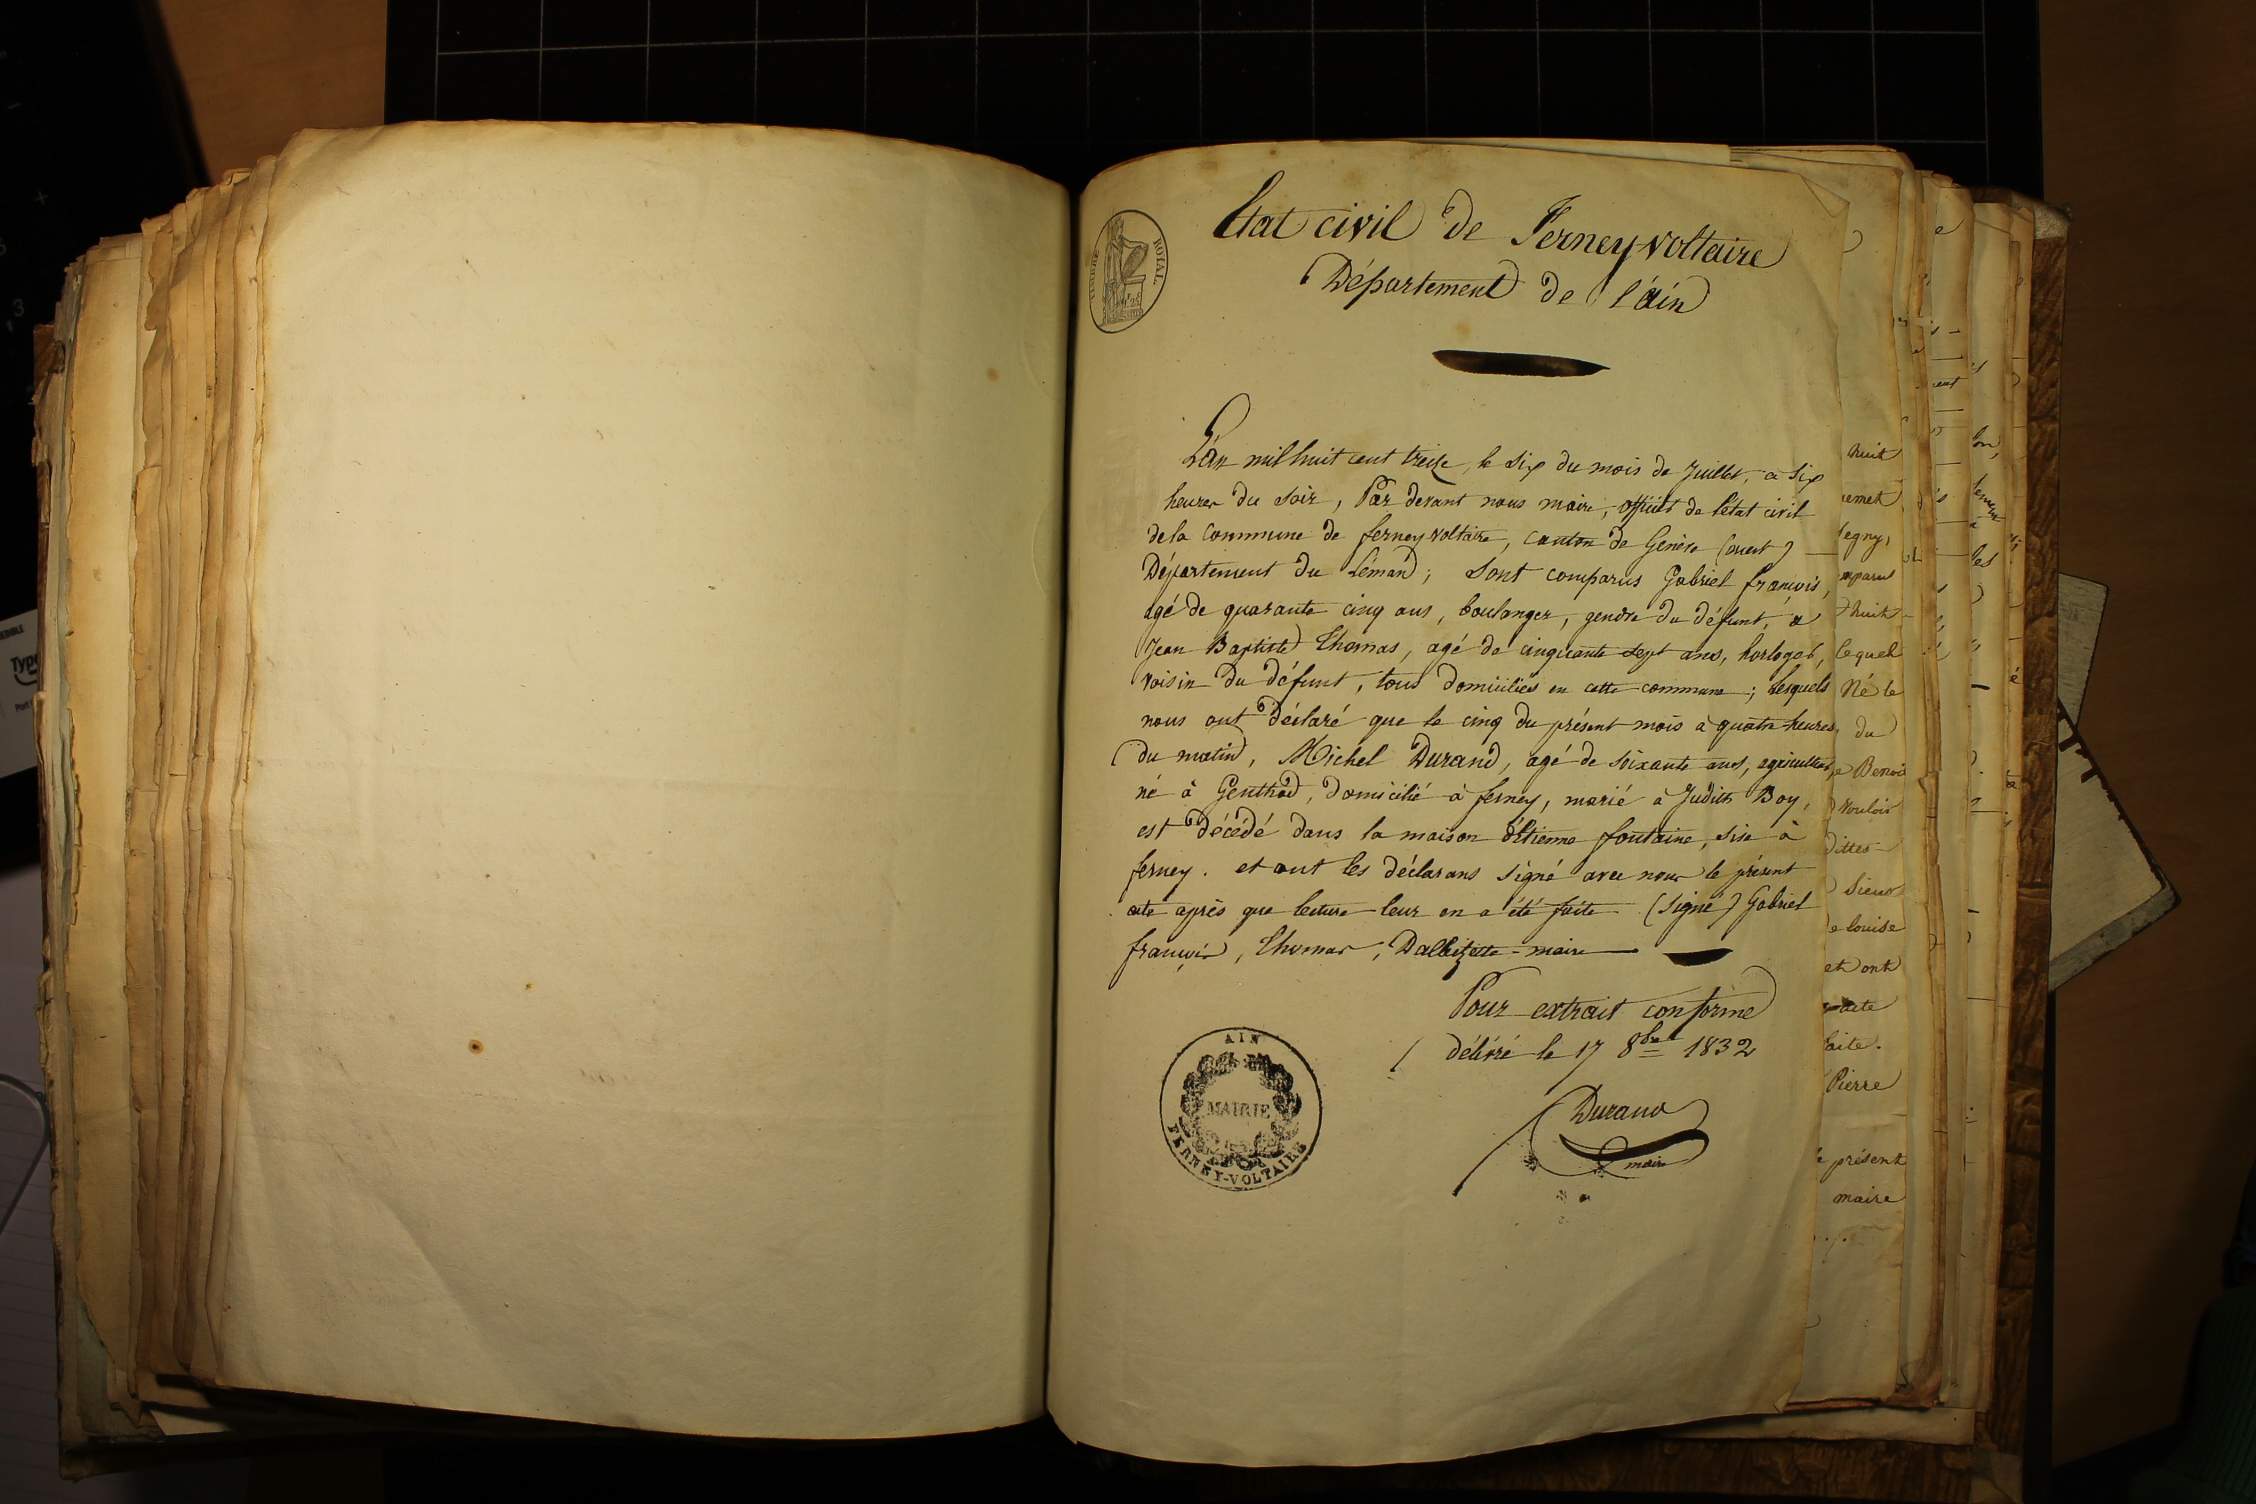 Etat civil de Ferney voltaire
Département de l'ain
TIMBRE ROYAL
L'an mil huit cent treize, le six du mois de Juillet, à six
heures du soir, Par devant nous maire, officier de l'état civil
de la Commune de ferney voltaire, canton de Genève (ouest)
Département du Léman; sont comparus Gabriel françois,
agé de quarante cinq ans, boulanger, gendre du défunt, &
Jean Baptiste Thomas, agé de cinquante sept ans, horloger,
voisin du défunt, tous domiciliés en cette commune; lesquels
nous ont déclaré que le cinq du présent mois à quatre heures
du matin, Michel Durand, agé de soixante ans, agriculteur,
né à Genthod, domicilié à ferney, marié à Judith Boy,
est décédé dans la maison d'étienne fontaine, sise à
ferney. et ont les déclarans signé avec nous le présent
acte après que lecture leur en a été faite. (signé) Gabriel
françois, Thomas, Dalbizette maire
Pour extrait conforme
délivré le 17 8bre 1832
Durand
maire
AIN
MAIRIE
FERNEY-VOLTAIRE
huit
egny,
mparus
huit
lequel
Né le
du
e Benoit
vouloir
dittes
Sieur
e louise
et ont
acte
faite.
Pierre
le présent
maire